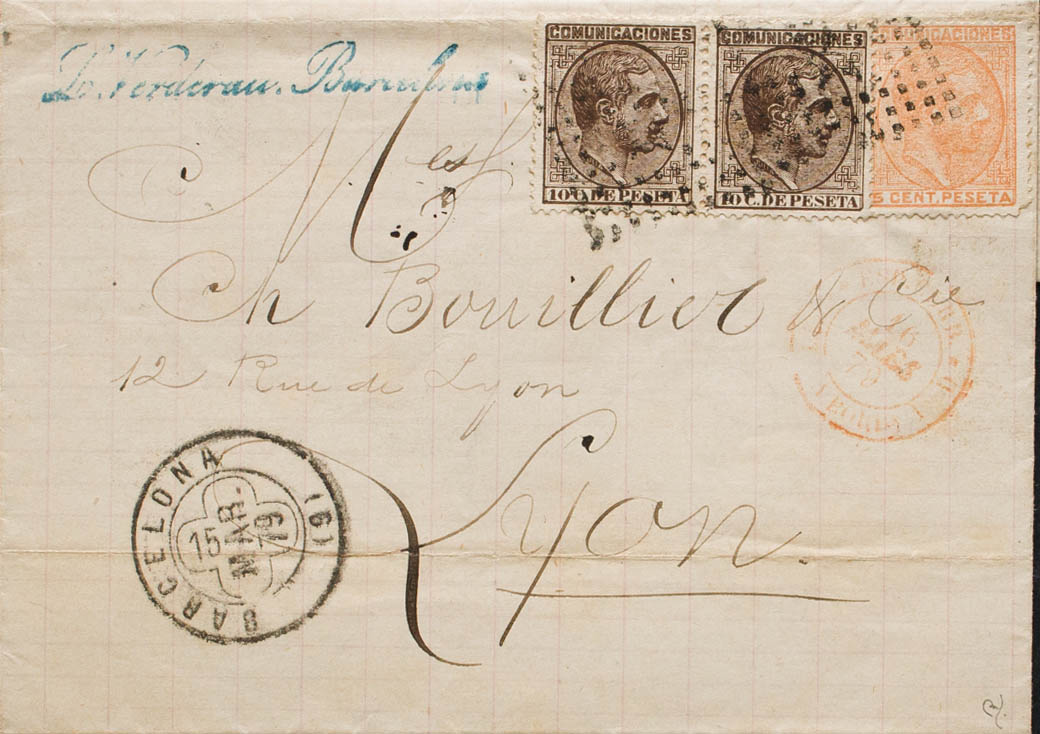 COMUNICACIONES COMUNICACIONES COMUNICACIONES
10 C. DE PESETA 10 C. DE PESETA 5 CENT. PESETA
Verderau. Barcelona
Mes
Ch Bouillier & Cie
12 Rue de Lyon
Lyon.
16
MARS
79
BARCELONA (6)
15
MAR.
79